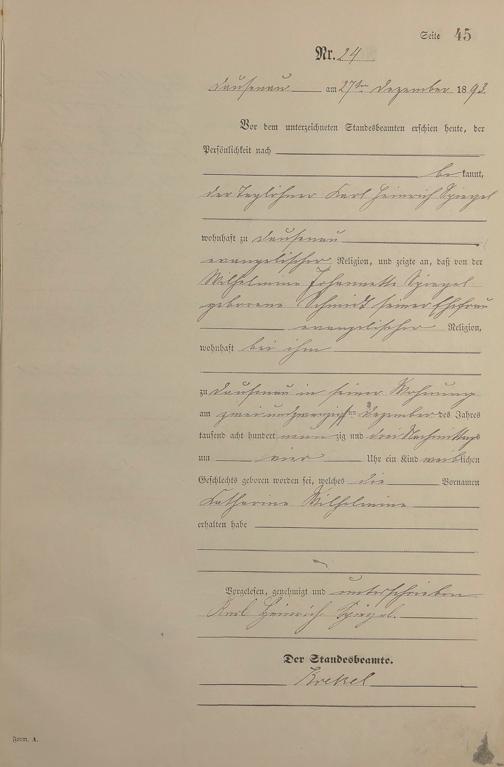 Seite 45
Nr. 24
Dausenau am 27ten Dezember 1893.
Vor dem unterzeichneten Standesbeamten erschien heute, der
Persönlichkeit nach
bekannt,
der Taglöhner Karl Heinrich Spiegel
wohnhaft zu Dausenau
evangelischer Religion, und zeigte an, daß von der
Wilhelmine Johannette Spiegel
geborene Schmidt seiner Ehefrau
evangelischer Religion,
wohnhaft bei ihm
zu Dausenau in seiner Wohnung
am zweiundzwanzigsten Dezember des Jahres
tausend acht hundert neunzig und drei Nachmittags
um vier Uhr ein Kind weiblichen
Geschlechts geboren worden sei, welches die Vornamen
Katharine Wilhelmine
erhalten habe
Vorgelesen, genehmigt und unterschrieben
Karl Heinrich Spiegel.
Der Standesbeamte.
Krekel
Form. A.